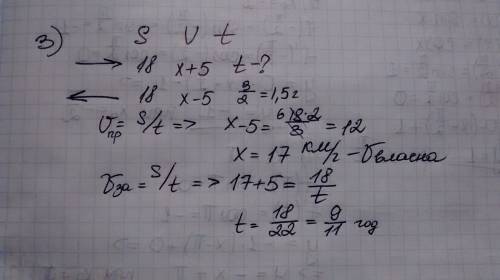 3) S V t
→ 18 x+5 t-?
← 18 x-5 3/2=1,5г
Vпр = S/t => x-5 = 18·2/3 = 12
6
x = 17 км/г - Vвласна
Vза = S/t => 17+5 = 18/t
t = 18/22 = 9/11 год